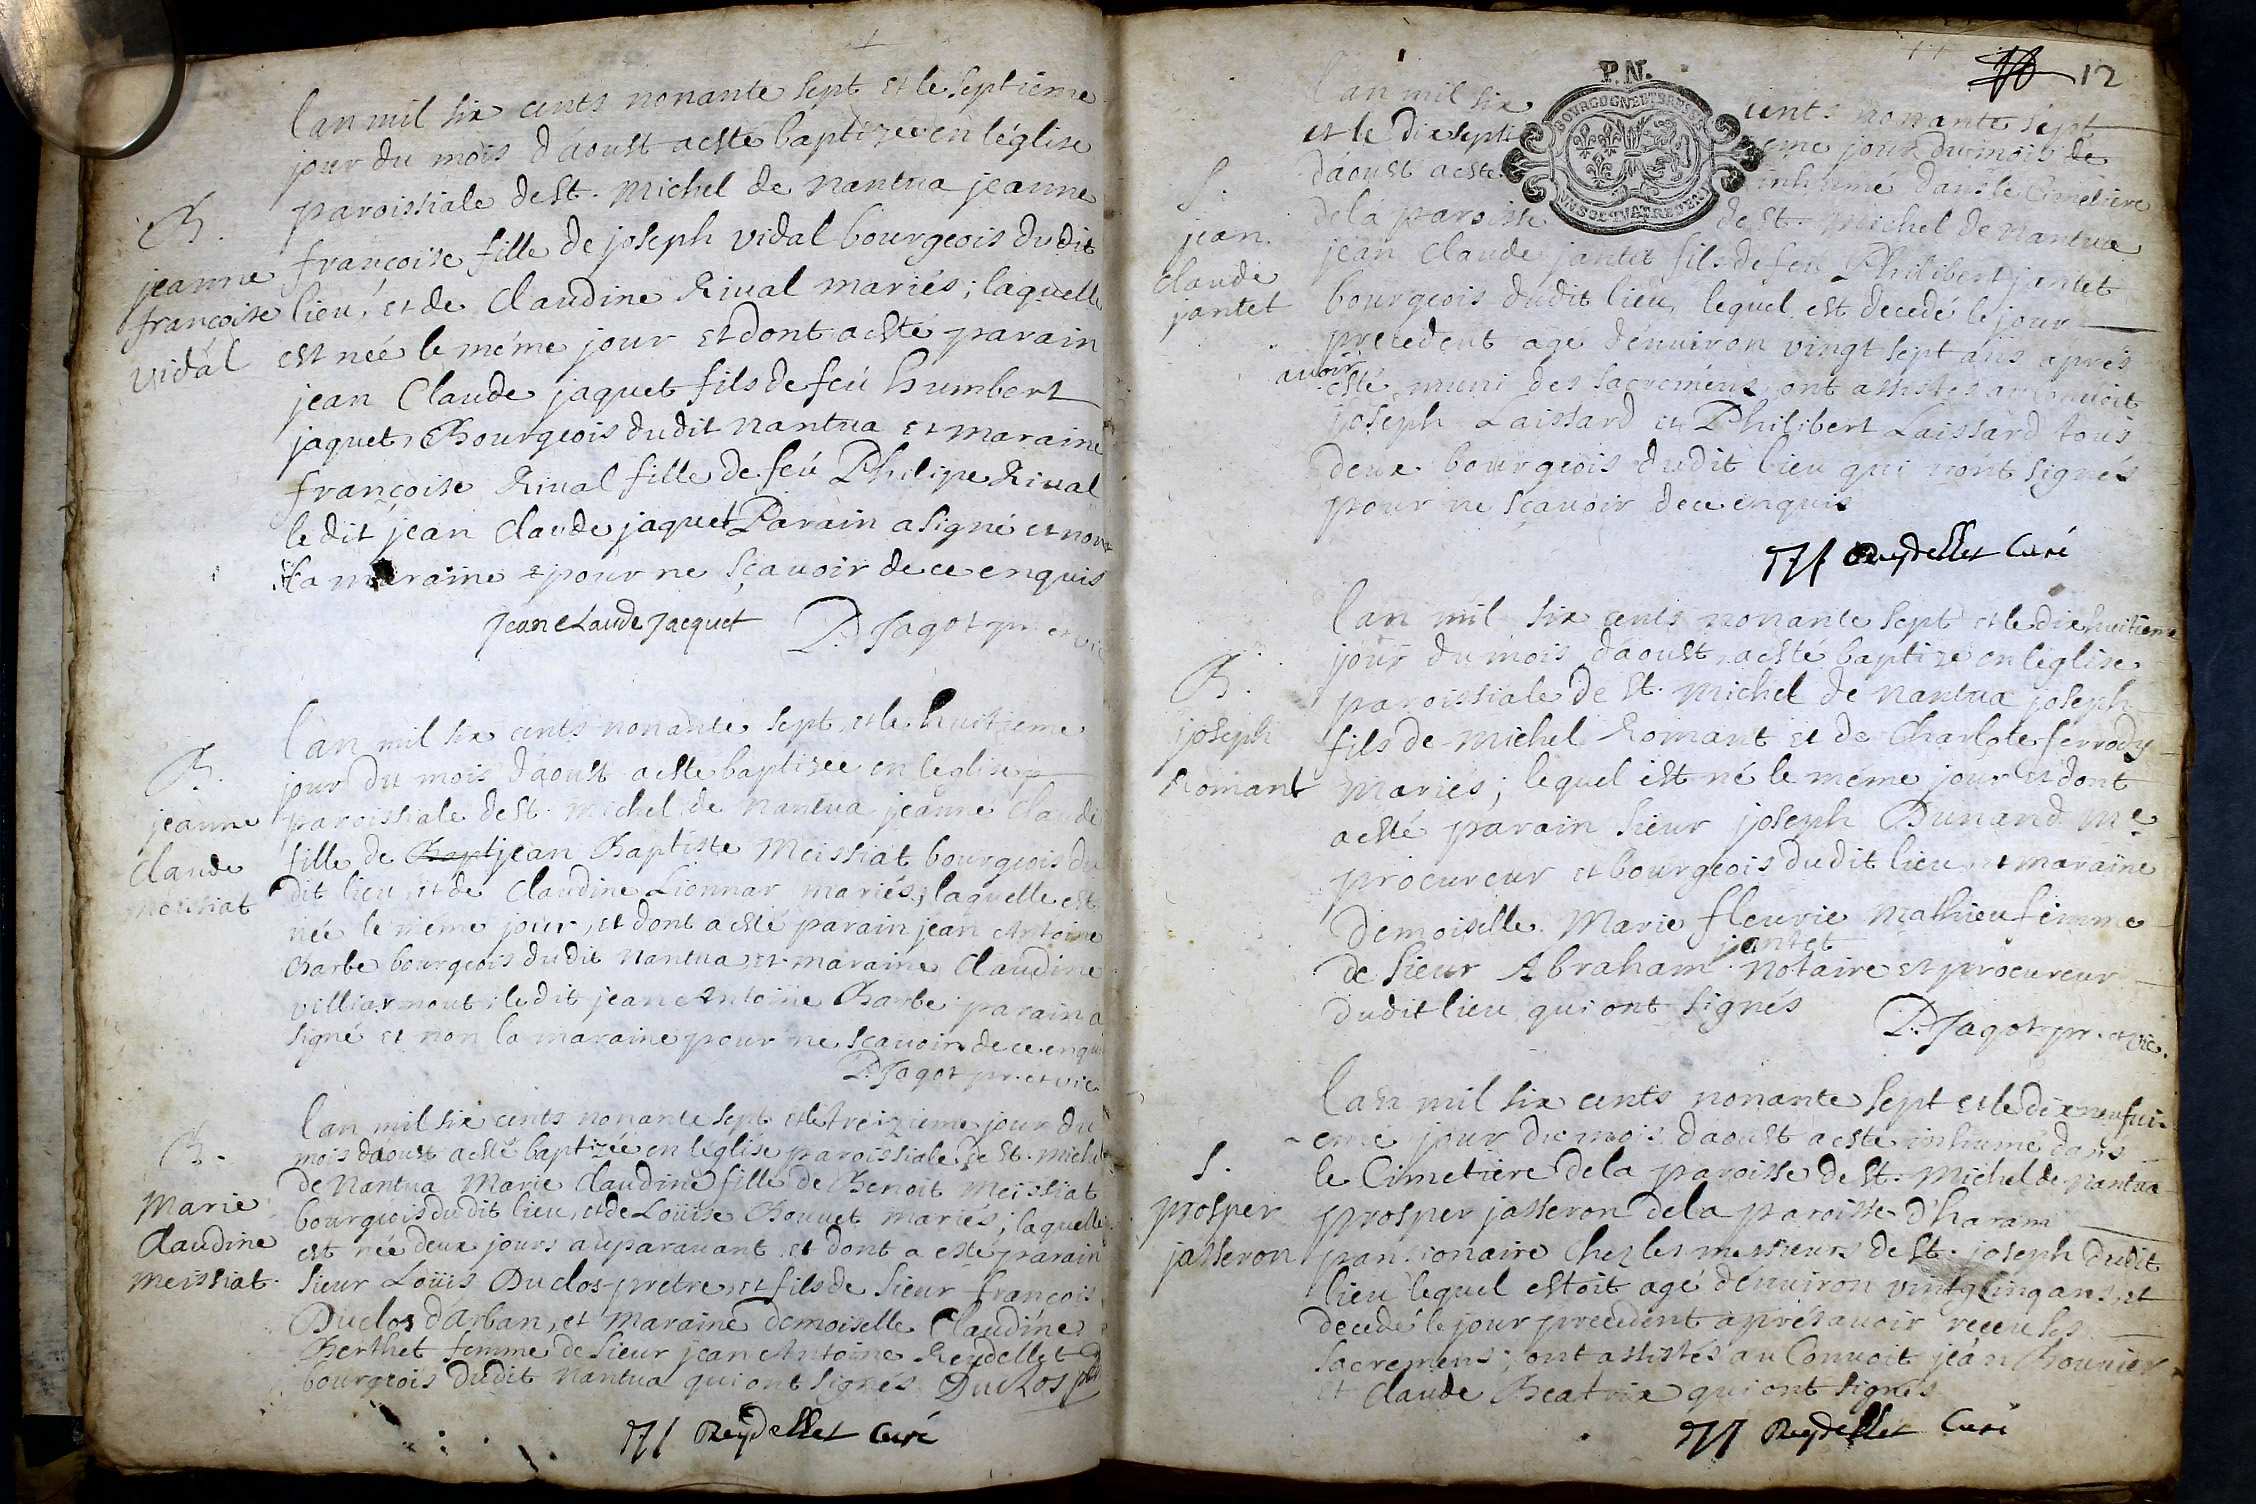 B.
jeanne
françoise
vidal
lan mil six cents nonante sept et le septieme
jour du mois d'aoust a esté baptizée en léglise
paroissiale de St. Michel de Nantua jeanne
françoise fille de joseph vidal bourgeois dudit
lieu, et de Claudine Rival mariés; laquelle
est née le méme jour et dont a esté parain
jean Claude jaquet fils de feu humbert
jaquet, Bourgeois dudit Nantua et maraine
françoise Rival fille de feu Philipe Rival
le dit jean Claude jaquet Parain a signé et non
la maraine pour ne sçavoir de ce enquis
jean claude jacquet P. Jagot pr. et vic
B.
jeanne
Claude
meissiat
lan mil six cents nonante sept et le huitieme
jour du mois d'aoust a esté baptizée en léglise
paroissiale de St. Michel de Nantua jeanne Claude
fille de Bapt jean Baptiste Meissiat bourgeois du
dit lieu, et de Claudine Lionnar mariés; laquelle est
née le méme jour, et dont a esté parain jean Antoine
Barbe bourgeois dudit Nantua, et maraine Claudine
villiarmout; le dit jean Antoine Barbe parain a
signé et non la maraine pour ne sçavoir de ce enquis
P. Jagot pr. et vic
B.
Marie
Claudine
Meissiat
lan mil six cents nonante sept et le treizieme jour du
mois d'aoust a esté baptizée en léglise paroissiale de St. Michel
de Nantua Marie Claudine fille de Benoit Meissiat
bourgeois dudit lieu, et de Loüise Bouvet mariés; laquelle
est née deux jours auparavant et dont a esté parain
sieur Loüis Duclos pretre, et fils de sieur françois
Duclos d'Arban, et Maraine demoiselle Claudine
Berthet femme de sieur jean Antoine Reydellet
bourgeois dudit Nantua qui ont signés Duclos ptre
Reydellet Curé
12
P.N.
BOURGOGNE ET BRESSE
S.
jean
Claude
jantet
lan mil six cents nonante sept
et le dix septieme jour du mois de
d'aoust a esté inhumé dans le Cimetiere
de la paroisse de St. Michel de Nantua
jean Claude jantet fils de feu Philibert jantet
bourgeois dudit lieu, lequel est decedé le jour
precedent agé d'environ vingt sept ans aprés
avoir esté muni des sacremens ont assistés au convoit
joseph Laissard et Philibert Laissard tous
deux bourgeois dudit lieu qui n'ont signés
pour ne sçavoir de ce enquis
Reydellet Curé
B.
joseph
Romant
lan mil six cents nonante sept et le dix huitieme
jour du mois d'aoust, a esté baptizé en léglise
paroissiale de St. Michel de Nantua joseph
fils de Michel Romant et de Charlote ferrody
Mariés; lequel est né le méme jour et dont
a esté parain sieur joseph Dunand Me
procureur et bourgeois dudit lieu, et maraine
Demoiselle Marie fleurie Mathieu femme
de sieur Abraham jantet Notaire et procureur
dudit lieu qui ont signés P. Jagot pr. et vic.
S.
prosper
jasseron
lan mil six cents nonante sept et le dix neufui-
eme jour du mois d'aoust a esté inhumé dans
le Cimetiere de la paroisse de St. Michel de Nantua
prosper jasseron de la paroisse d'haram
pansionaire chez les messieurs de St. joseph dudit
lieu lequel estoit agé d'environ vintg cinq ans, et
decedé le jour precedent aprés avoir receu les
sacremens; ont assistés au Convoit jean Bouvier
et Claude Beatrix qui ont signés
Reydellet Curé